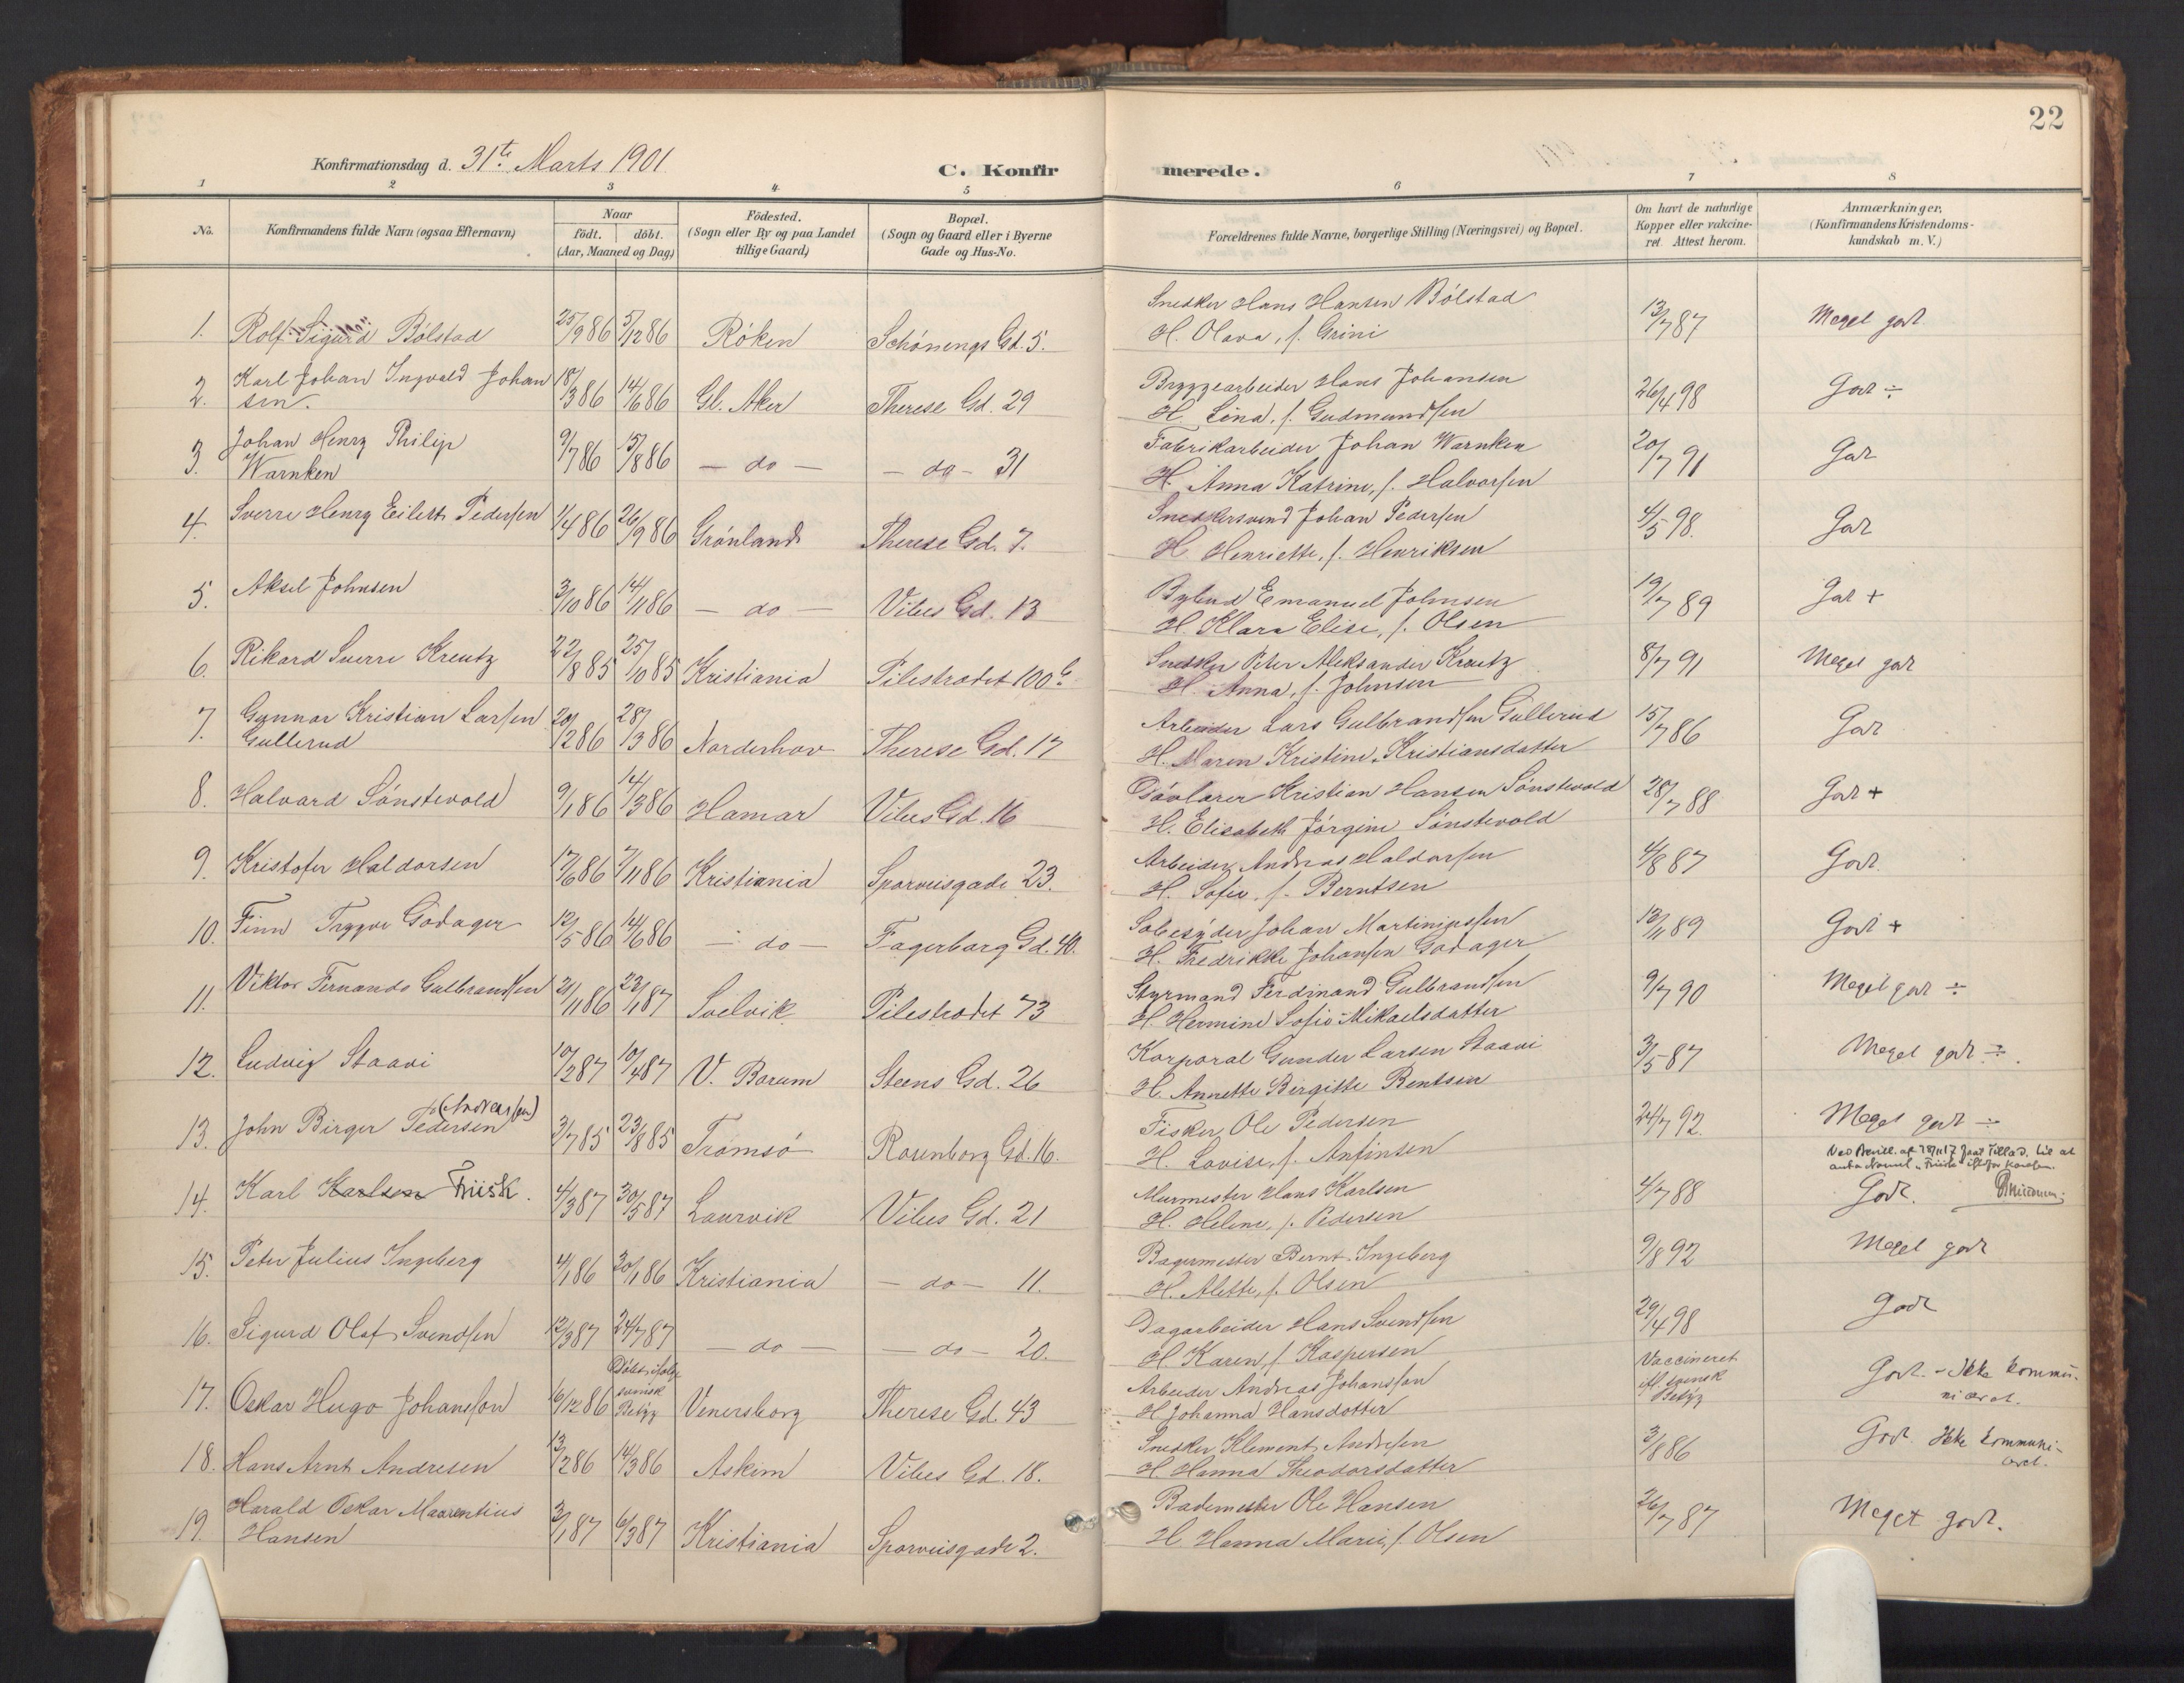 22
Konfirmationsdag d. 31te Marts 1901
C. Konfirmerede.
1 2 3 4 5 6 7 8
No.
Konfirmandens fulde Navn (ogsaa Efternavn)
Naar
født. døbt.
(Aar, Maaned og Dag)
Födested.
(Sogn eller By og paa Landet
tillige Gaard)
Bopæl.
(Sogn og Gaard eller i Byerne
Gade og Hus-No.
Forældrenes fulde Navne, borgerlige Stilling (Næringsvei) og Bopæl.
Om havt de naturlige
Kopper eller vakcine-
ret. Attest herom.
Anmærkninger.
(Konfirmandens Kristendoms-
kundskab m. V.)
1. Rolf Sigurd Bölstad 25/9 86 5/12 86 Röken Schönings Gd. 5. Snedker Hans Hansen Bölstad 13/7 87 Meget godt
H. Olava, f. Grini
2. Karl Johan Ingvald Johan 18/3 86 14/6 86 Gl. Aker Therese Gd. 29 Bryggearbeider Hans Johansen 26/4 98 Godt ÷
sen. H. Lina, f. Gudmundsen
3. Johan Henry Philip 9/7 86 15/8 86 - do - - do - 31 Fabrikarbeider Johan Warnken 20/7 91 Godt
Warnken H. Anna Katrine, f. Halvorsen
4. Sverre Henry Eilert Pedersen 1/4 86 26/9 86 Grönland Therese Gd. 7. Snedkersvend Johan Pedersen 4/5 98. Godt
H. Henriette, f. Henriksen
5. Aksel Johnsen 3/10 86 14/11 86 - do - Vibes Gd. 13 Bybud Emanuel Johnsen 19/7 89 Godt +
H. Klara Elise, f. Olsen
6. Rikard Sverre Kreutz 22/8 85 25/10 85 Kristiania Pilestrædet 100 Snedker Peter Aleksander Kreutz 8/7 91 Meget godt
H. Anna, f. Johnsen
7. Gunnar Kristian Larsen 20/12 86 28/3 86 Norderhov Therese Gd. 17 Arbeider Lars Gulbrandsen Gullerud 15/7 86 Godt
Gullerud H. Maren Kristine Kristiansdatter
8. Halvard Sönstevold 9/1 86 14/3 86 Hamar Vibes Gd. 16 Kristian Hansen Sönstevold 28/7 88 Godt +
H. Elisabeth Jörgine Sönstevold
9. Kristofer Haldorsen 17/6 86 7/11 86 Kristiania Sporveisgade 23. Arbeider Andreas Haldorsen 4/8 87 Godt.
H. Sofie, f. Berntsen
10. Finn Trygve Godager 12/5 86 14/6 86 - do - Fagerborg Gd. 40. Johan Martiniussen 13/11 89 Godt +
H. Fredrikke Johansen Godager
11. Viktor Fernando Gulbrandsen 21/11 86 23/1 87 Svelvik Pilestrædet 73 Styrmand Ferdinand Gulbrandsen 9/7 90 Meget godt ÷
H. Hermine Sofie Mikaelsdatter
12. Ludvig Staavi 10/2 87 10/4 87 V. Bærum Steens Gd. 26 Korporal Gunder Larsen Staavi 3/5 87 Meget godt ÷.
H. Annette Birgitte Bentsen
13. John Birger Pedersen (Andreassen) 3/7 85 23/8 85 Tromsö Rosenborg Gd. 16. Fisker Ole Pedersen 24/7 92. Meget godt ÷
H. Lovise, f. Anfinsen
Ved Bevill. af 18/11 17 givet Tillad. til at
anta Navnet "Friisk" istedfor Karlsen.
14. Karl Karlsen Friisk. 4/3 87 30/5 87 Laurvik Vibes Gd. 21 Murmester Hans Karlsen 4/7 88 Godt.
H. Helene, f. Pedersen
15. Peter Julius Ingeberg 4/1 86 30/1 86 Kristiania - do - 11. Bagermester Bernt Ingeberg 9/8 92 Meget godt
H. Alette, f. Olsen
16. Sigurd Olaf Svendsen 12/3 87 24/7 87 - do - - do - 20. Dagarbeider Hans Svendsen 29/4 98 Godt
H. Karen, f. Kaspersen
17. Oskar Hugo Johansson 16/12 86 Döbt ifølge svensk Betyg Venersborg Therese Gd. 43 Arbeider Andreas Johansson Vaccineret ifl. svensk Betyg Godt. - Ikke kommu-
niceret.
H. Johanna Hansdotter
18. Hans Arnt Andresen 13/2 86 14/3 86 Askim Vibes Gd. 18. Snedker Klement Andresen 3/8 86 Godt. Ikke kommuni-
ceret.
H. Hanna Theodorsdatter
19. Harald Oskar Maorentius 3/1 87 6/3 87 Kristiania Sporveisgade 2. Bademester Ole Hansen 26/7 87 Meget godt.
Hansen H. Hanna Marie, f. Olsen